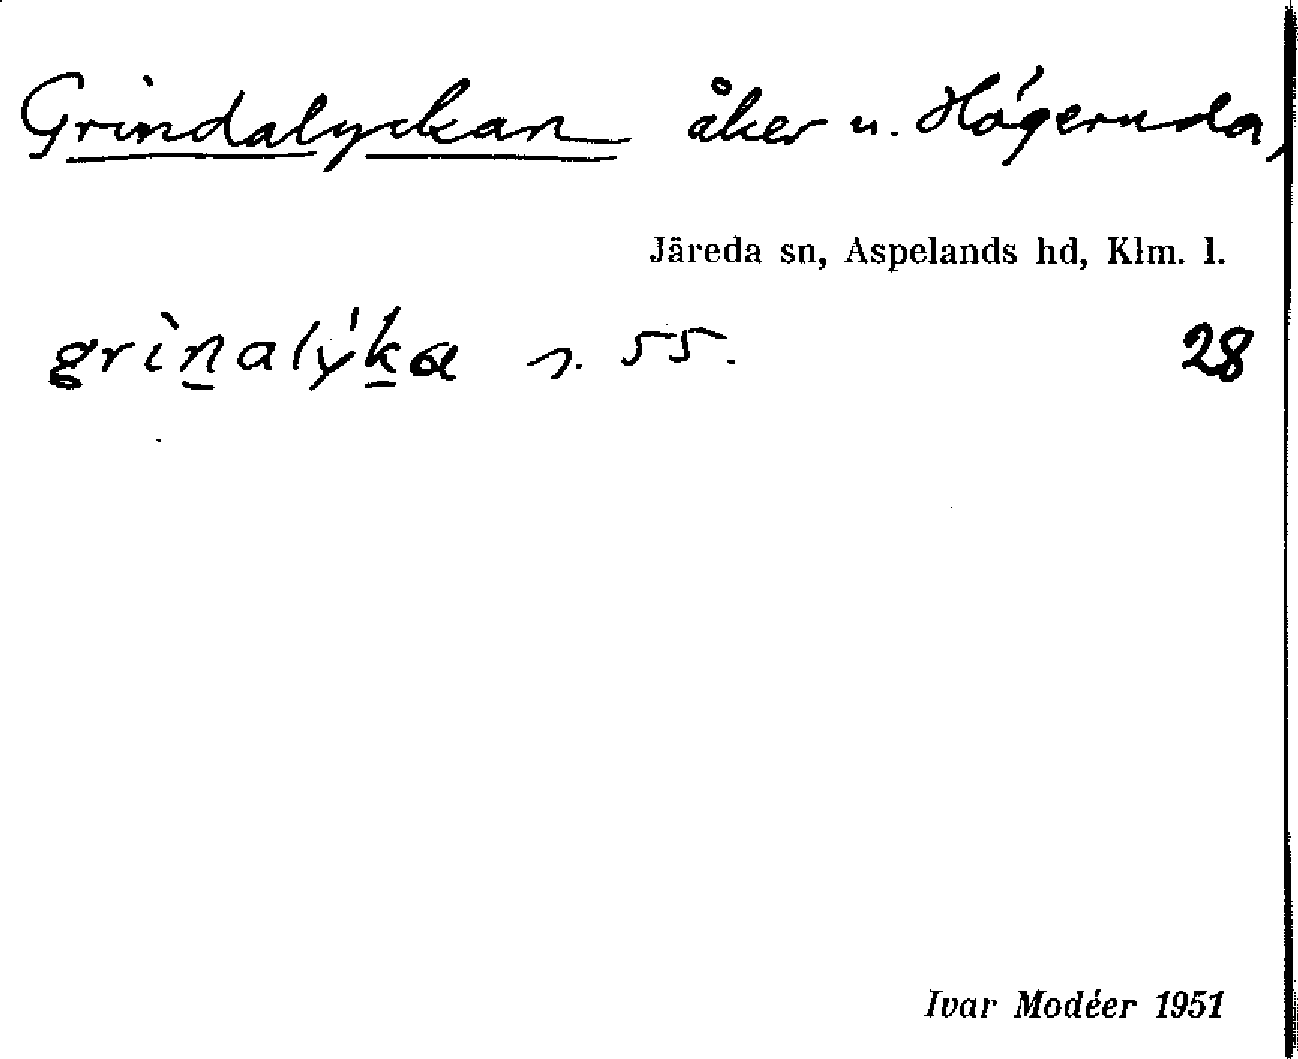 Grindalyckan åker u. Högeruda,
Järeda sn, Aspelands hd, Klm. l.
grìn̲alýk̲a s. 55. 28
Ivar Modéer 1951